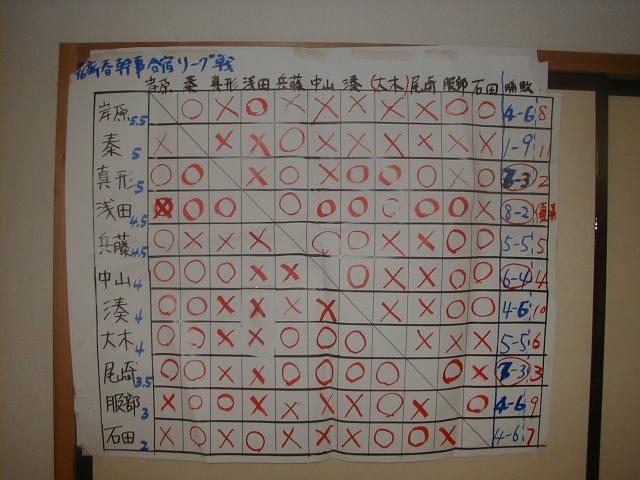 新春幹事合宿リーグ戦
岸原 秦 真形 浅田 兵藤 中山 湊 (大木) 尾崎 服部 石田 勝敗
岸原 5.5 ○ × ○ × × × × × ○ ○ 4-6 8
秦 5 × × × ○ × × × × × × 1-9 11
真形 5 ○ ○ × ○ × ○ ○ ○ ○ × 7-3 2
浅田 4.5 ○ ○ ○ ○ ○ ○ ○ ○ × 8-2 優勝
兵藤 4.5 ○ × × × ○ ○ × × ○ ○ 5-5 5
中山 4 ○ ○ ○ × × ○ × × ○ ○ 6-4 4
湊 4 ○ ○ × × × × × × ○ ○ 4-6 10
大木 4 ○ ○ × × ○ ○ ○ × × × 5-5 6
尾崎 3.5 ○ ○ × × ○ ○ ○ ○ ○ × 7-3 3
服部 3 × ○ × × × × × ○ × ○ 4-6 9
石田 2 × ○ ○ ○ × × × ○ ○ × 4-6 7